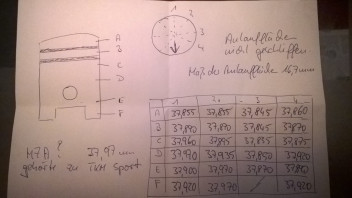 A
B
C
D
E
F
1
2
3
4
Anlauffläche
nicht geschliffen
Maß der Anlauffläche 14,7 mm
KZA ?
37,97 mm
gehörte zu TKM Sport
1 2 3 4
A 37,855 37,855 37,845 37,860
B 37,870 37,870 37,845 37,870
C 37,960 37,895 37,835 37,875
D 37,970 37,935 37,850 37,920
E 37,900 37,970 37,870
F 37,920 37,970 37,920